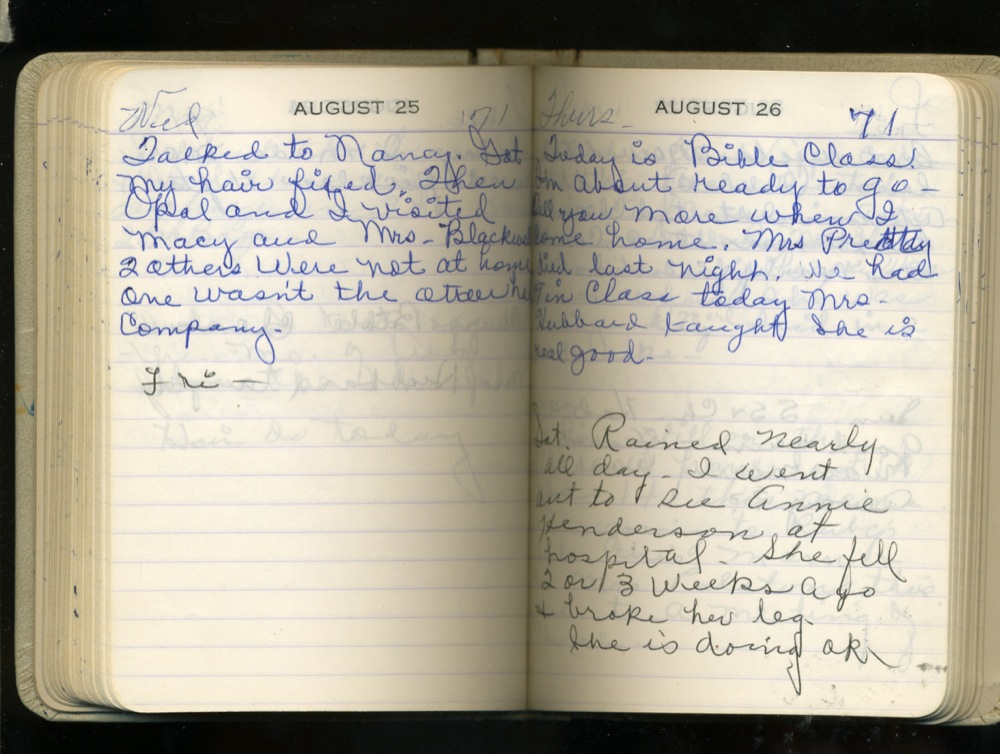 Wed AUGUST 25 71
Talked to Nancy. Got
my hair fixed. Then
Opal and I visited
Macy and Mrs- Blackwe
2 others Were not at home
one wasn't the other he
Company-
Fri -
Thurs- AUGUST 26 71
Today is Bible Class
Im about ready to go-
tell you more when I
come home. Mrs Prettty
died last night. We had
9 in Class today Mrs.
Hubbard taught she is
real good-
Sat. Rained nearly
all day- I went
out to see Annie
Henderson at
hospital- She fell
2 or 3 Weeks ago
& broke her leg.
She is doing ok